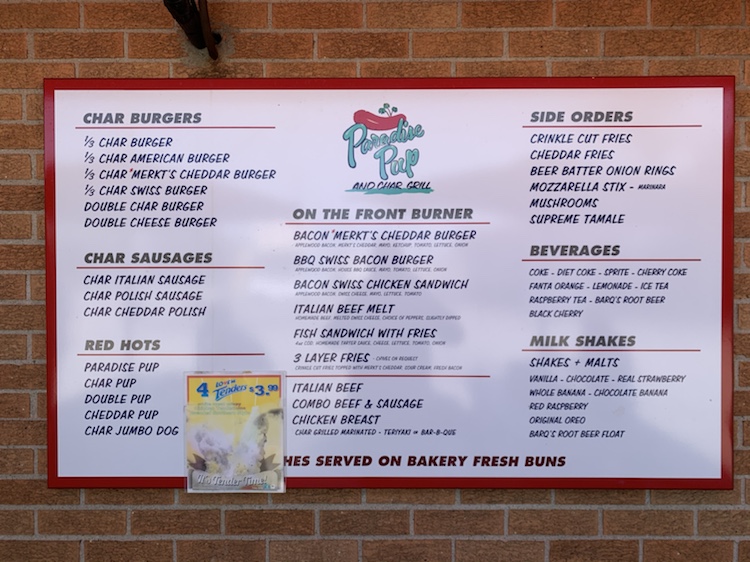 CHAR BURGERS
1/3 CHAR BURGER
1/3 CHAR AMERICAN BURGER
1/3 CHAR *MERKT'S CHEDDAR BURGER
1/3 CHAR SWISS BURGER
DOUBLE CHAR BURGER
DOUBLE CHEESE BURGER
CHAR SAUSAGES
CHAR ITALIAN SAUSAGE
CHAR POLISH SAUSAGE
CHAR CHEDDAR POLISH
RED HOTS
PARADISE PUP
CHAR PUP
DOUBLE PUP
CHEDDAR PUP
CHAR JUMBO DOG
4
Tenders
$3.99
It's Tender Time!
Paradise
Pup
AND CHAR GRILL
ON THE FRONT BURNER
BACON *MERKT'S CHEDDAR BURGER
APPLEWOOD BACON, MERKT'S CHEDDAR, MAYO, KETCHUP, TOMATO, LETTUCE, ONION
BBQ SWISS BACON BURGER
APPLEWOOD BACON, HOUSE BBQ SAUCE, MAYO, TOMATO, LETTUCE, ONION
BACON SWISS CHICKEN SANDWICH
APPLEWOOD BACON, SWISS CHEESE, MAYO, LETTUCE, TOMATO
ITALIAN BEEF MELT
HOMEMADE BEEF, MELTED SWISS CHEESE, CHOICE OF PEPPERS, SLIGHTLY DIPPED
FISH SANDWICH WITH FRIES
4oz COD, HOMEMADE TARTER SAUCE, CHEESE, LETTUCE, TOMATO, ONION
3 LAYER FRIES - CHIVES ON REQUEST
CRINKLE CUT FRIES TOPPED WITH MERKT'S CHEDDAR, SOUR CREAM, FRESH BACON
ITALIAN BEEF
COMBO BEEF & SAUSAGE
CHICKEN BREAST
CHAR GRILLED MARINATED - TERIYAKI OR BAR-B-QUE
HES SERVED ON BAKERY FRESH BUNS
SIDE ORDERS
CRINKLE CUT FRIES
CHEDDAR FRIES
BEER BATTER ONION RINGS
MOZZARELLA STIX - MARINARA
MUSHROOMS
SUPREME TAMALE
BEVERAGES
COKE - DIET COKE - SPRITE - CHERRY COKE
FANTA ORANGE - LEMONADE - ICE TEA
RASPBERRY TEA - BARQ'S ROOT BEER
BLACK CHERRY
MILK SHAKES
SHAKES + MALTS
VANILLA - CHOCOLATE - REAL STRAWBERRY
WHOLE BANANA - CHOCOLATE BANANA
RED RASPBERRY
ORIGINAL OREO
BARQ'S ROOT BEER FLOAT